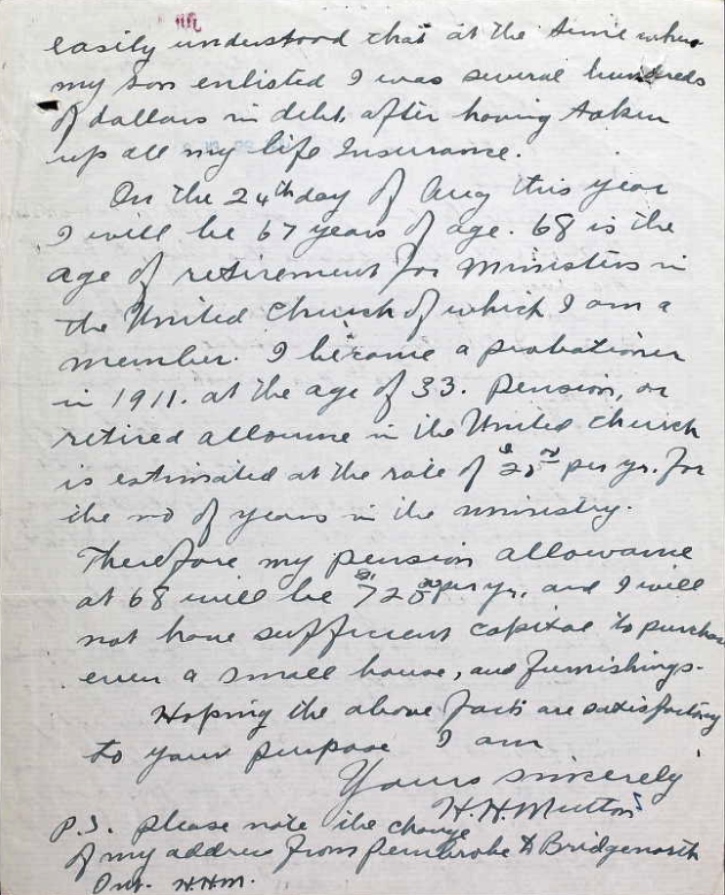 easily understood that at the time when
my son enlisted I was several hundreds
of dollars in debt, after having taken
up all my life Insurance.
On the 24th day of Aug this year
I will be 67 years of age. 68 is the
age of retirement for ministers in
the United Church of which I am a
member. I became a probationer
in 1911. at the age of 33. Pension, or
retired allowance in the United church
is estimated at the rate of per yr. for
the no of years in the ministry.
Therefore my pension allowance
at 68 will be per yr, and I will
not have sufficient capital to purchase
even a small house, and furnishings.
Hoping the above facts are satisfactory
to your purpose I am
Yours sincerely
H. H. Mutton
P.S. please note the change
of my address from Pembroke to Bridgenorth
Ont. HHM.